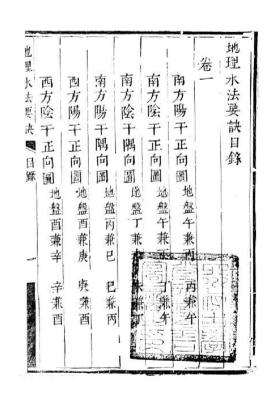 地理水法要訣目錄
卷一
南方陽干正向圖 地盤午兼 丙兼午
南方陰干正向圖 地盤午兼 丁兼午
南方陰干隅向圖 地盤丁兼 兼丁
南方陽干隅向圖 地盤丙兼巳 巳兼丙
西方陽干正向圖 地盤酉兼庚 庚兼酉
西方陰干正向圖 地盤酉兼辛 辛兼酉
地理水法要訣 目錄